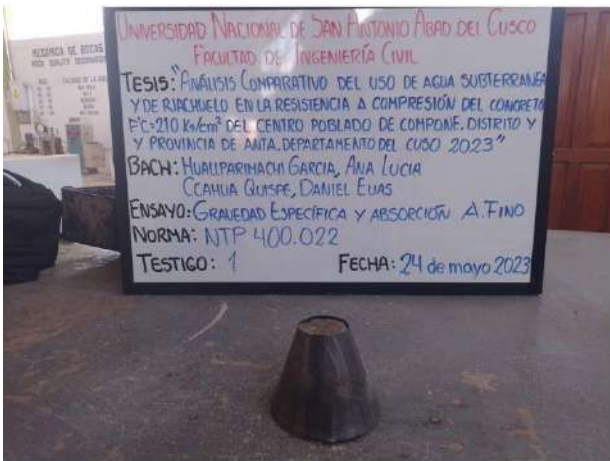 UNIVERSIDAD NACIONAL DE SAN ANTONIO ABAD DEL CUSCO
FACULTAD DE INGENIERÍA CIVIL
TESIS: "ANÁLISIS COMPARATIVO DEL USO DE AGUA SUBTERRANEA
Y DE RIACHUELO EN LA RESISTENCIA A COMPRESIÓN DEL CONCRETO
F'C=210 KG/cm² DEL CENTRO POBLADO DE COMPONE. DISTRITO Y
Y PROVINCIA DE ANTA. DEPARTAMENTO DEL CUSO 2023"
BACH: HUALLPARIMACHI GARCIA, ANA LUCIA
CCAHUA QUISPE, DANIEL ELIAS
ENSAYO: GRAVEDAD ESPECÍFICA Y ABSORCIÓN A. FINO
NORMA: NTP 400.022
TESTIGO: 1 FECHA: 24 de mayo 2023
MECÁNICA DE ROCAS
ROCK QUALITY